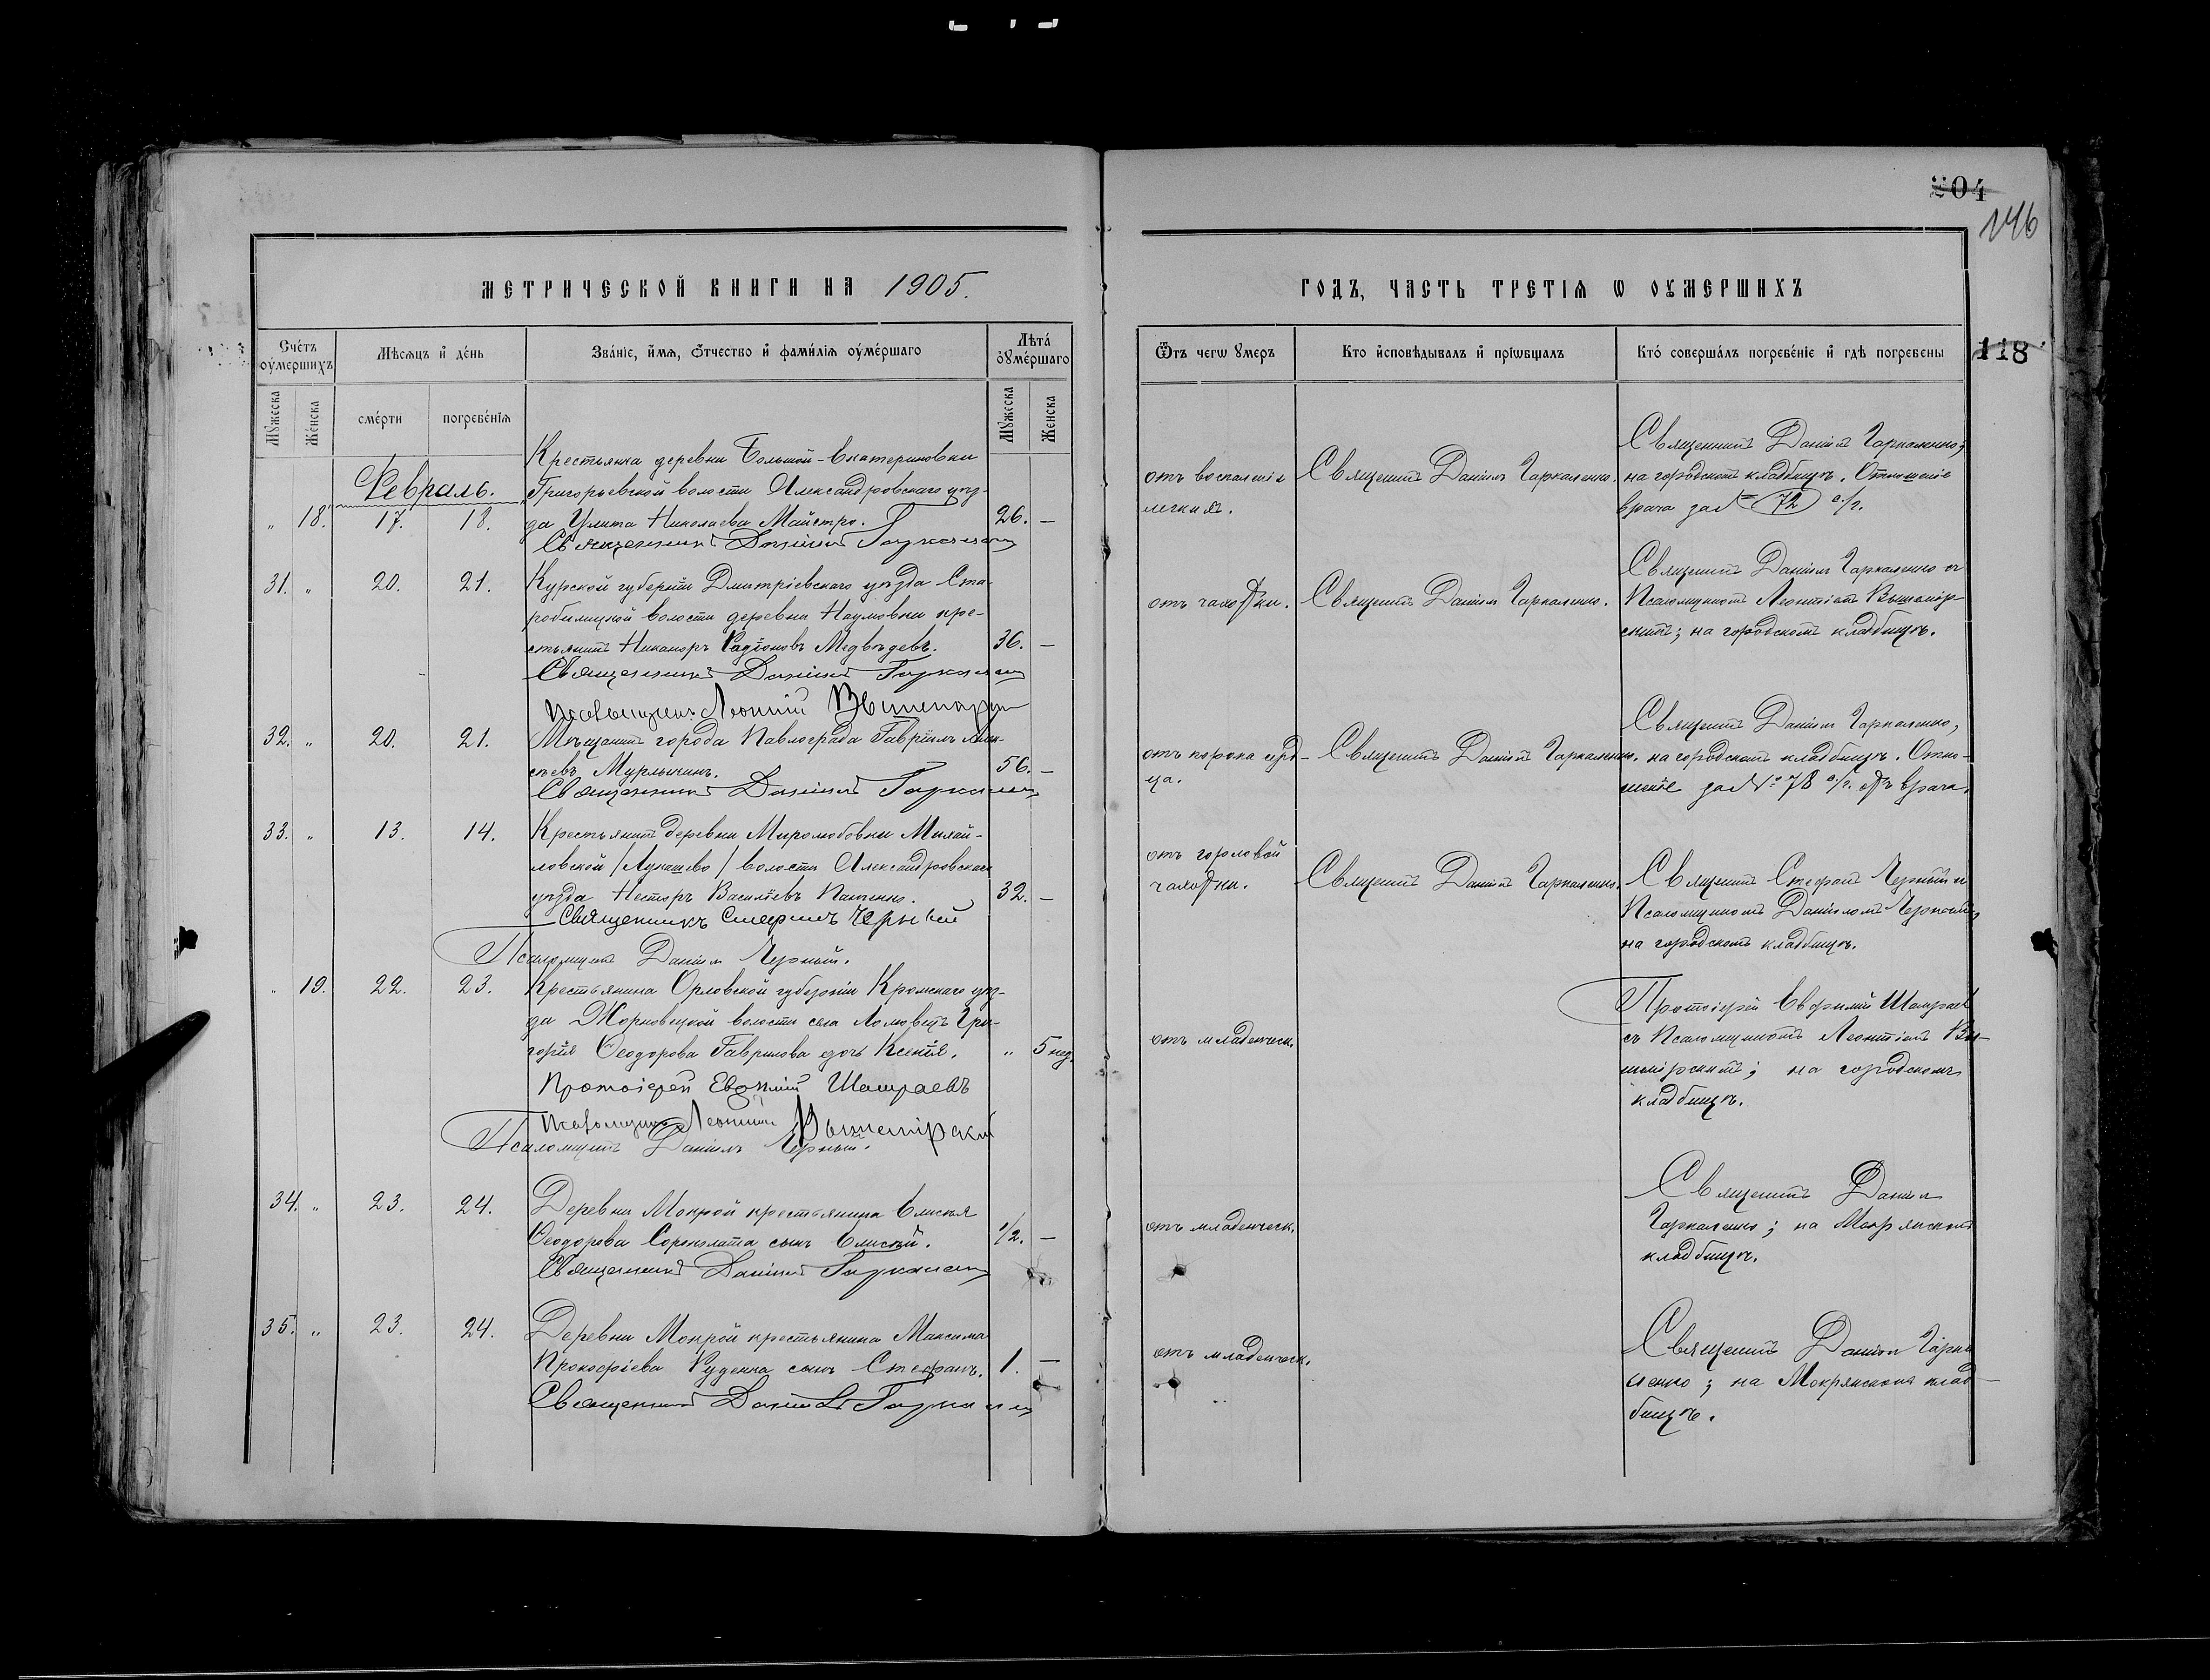 204
146
МЕТРИЧЕСКОЙ КНИГИ НА 1905.
ГОДЪ, ЧАСТЬ ТРЕТІѦ Ѡ ОУМЕРШИХЪ
118
Счетъ оумершихъ
Мѣсяцъ и день
Званіе, имя, отчество и фамилія оумершаго
Лѣта оумершаго
Мужеска
Женска
смерти
погребенія
Мужеска
Женска
Ѿтъ чегѡ умеръ
Кто исповѣдывалъ и пріѡбщалъ
Кто совершалъ погребеніе и гдѣ погребены
Февраль.
„ 18. 17. 18.
Крестьянка деревни Большой-Екатериновки
Григорьевской волости Александровскаго уѣз-
да Улита Николаева Майстро. 26. —
Священникъ Даніилъ Гаркаленко
отъ воспаленія
легкихъ.
Священникъ Даніилъ Гаркаленко.
Священникъ Даніилъ Гаркаленко;
на городскомъ кладбищѣ. Отношеніе
врача за № 72 с./г.
31. „ 20. 21.
Курской губерніи Дмитріевскаго уѣзда Ста-
робѣлицкой волости деревни Наумовки кре-
стьянинъ Никаноръ Родіоновъ Медвѣдевъ. 36. —
Священникъ Даніилъ Гаркаленко
Псаломщикъ Леонтій
отъ чахотки.
Священникъ Даніилъ Гаркаленко.
Священникъ Даніилъ Гаркаленко съ
Псаломщикомъ Леонтіемъ Вышемір-
скимъ; на городскомъ кладбищѣ.
32. „ 20. 21.
Мѣщанинъ города Павлограда Гавріилъ Алек-
сѣевъ Мурлыкинъ. 56. —
Священникъ Даніилъ Гаркаленко
отъ порока серд-
ца.
Священникъ Даніилъ Гаркаленко.
Священникъ Даніилъ Гаркаленко,
на городскомъ кладбищѣ. Отно-
шеніе за № 78 с./г. отъ врача.
33. „ 13. 14.
Крестьянинъ деревни Миролюбовки Михай-
ловской /Лукашево/ волости Александровскаго
уѣзда Несторъ Васильевъ Пащенко. 32. —
Священникъ Стефанъ Черный
Псаломщикъ Даніилъ Черный.
отъ горловой
чахотки.
Священникъ Даніилъ Гаркаленко.
Священникъ Стефанъ Черный съ
Псаломщикомъ Даніиломъ Чернымъ,
на городскомъ кладбищѣ.
„ 19. 22. 23.
Крестьянина Орловской губерніи Кромскаго уѣз-
да Жерновецкой волости села Ломовецъ Гри-
горія Ѳеодорова Гаврилова дочь Ксенія. „ 5 нед.
Протоіерей Евфимій Шамраевъ
Псаломщикъ Леонтій Вышемірскій
Псаломщикъ Даніилъ Черный.
отъ младенческ.
Протоіерей Евфимій Шамраевъ
съ Псаломщикомъ Леонтіемъ Вы-
шемірскимъ; на городскомъ
кладбищѣ.
34. „ 23. 24.
Деревни Мокрой крестьянина Елисея
Ѳеодорова сынъ Елисей. 1/2. —
Священникъ Даніилъ Гаркаленко
отъ младенческ.
Священникъ Даніилъ
Гаркаленко; на Мокрянскомъ
кладбищѣ.
35. „ 23. 24.
Деревни Мокрой крестьянина Максима
Прокофіева Руденка сынъ Стефанъ. 1. —
Священникъ Даніилъ Гаркаленко
отъ младенческ.
Священникъ Даніилъ Гарка-
ленко; на Мокрянскомъ клад-
бищѣ.